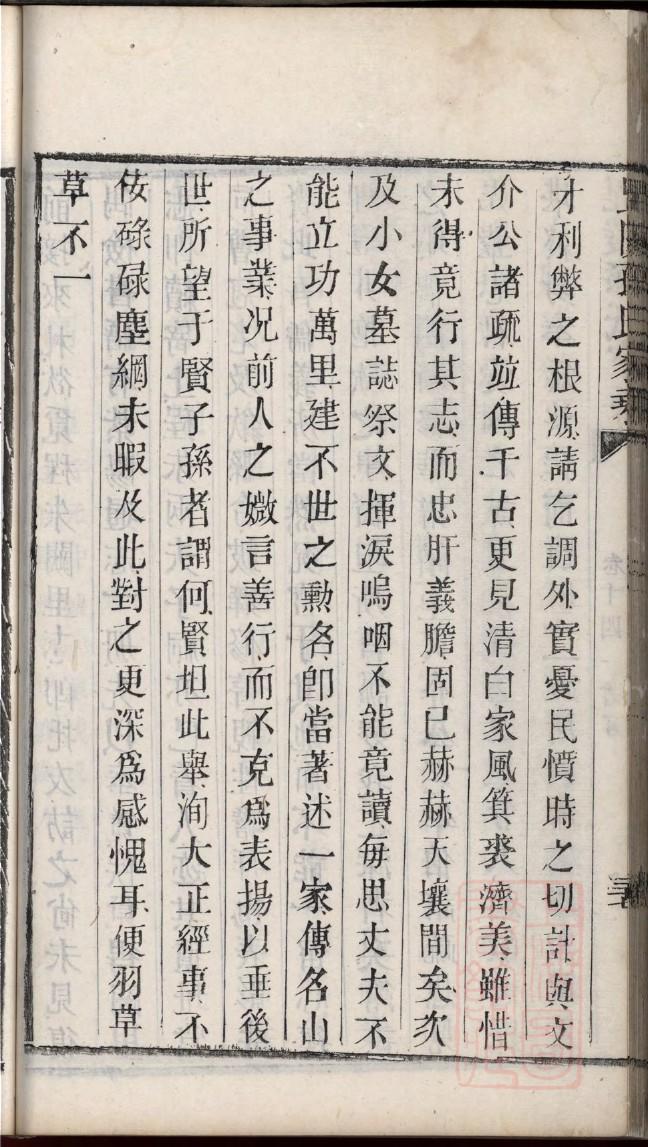 才利弊之根源請乞調外實憂民憤時之切計與文
介公諸疏並傳千古更見清白家風箕裘濟美雖惜
未得竟行其志而忠肝義膽固已赫赫天壤間矣次
及小女墓誌祭文揮淚嗚咽不能竟讀每思丈夫不
能立功萬里建不世之勳名即當著述一家傳名山
之事業況前人之媺言善行而不克爲表揚以垂後
世所望于賢子孫者謂何賢坦此舉洵大正經事不
佞碌碌塵網未暇及此對之更深爲感愧耳便羽草
草不一
孫氏家乘